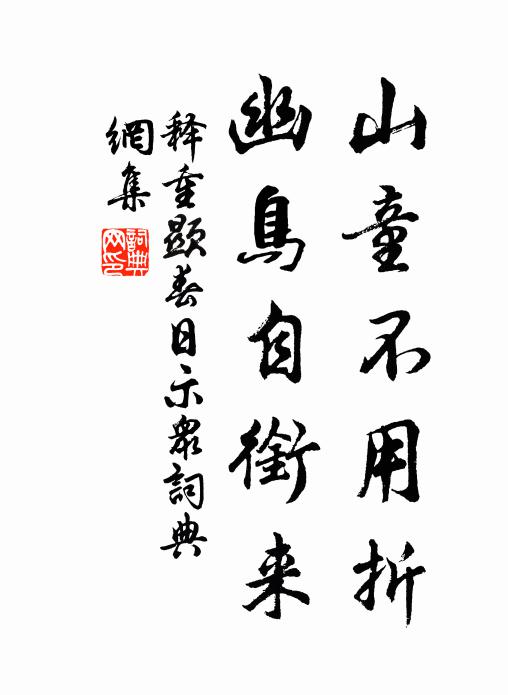 山童不用折
幽鳥自銜来
释重顯春日示眾詞典
網集
詞典網印